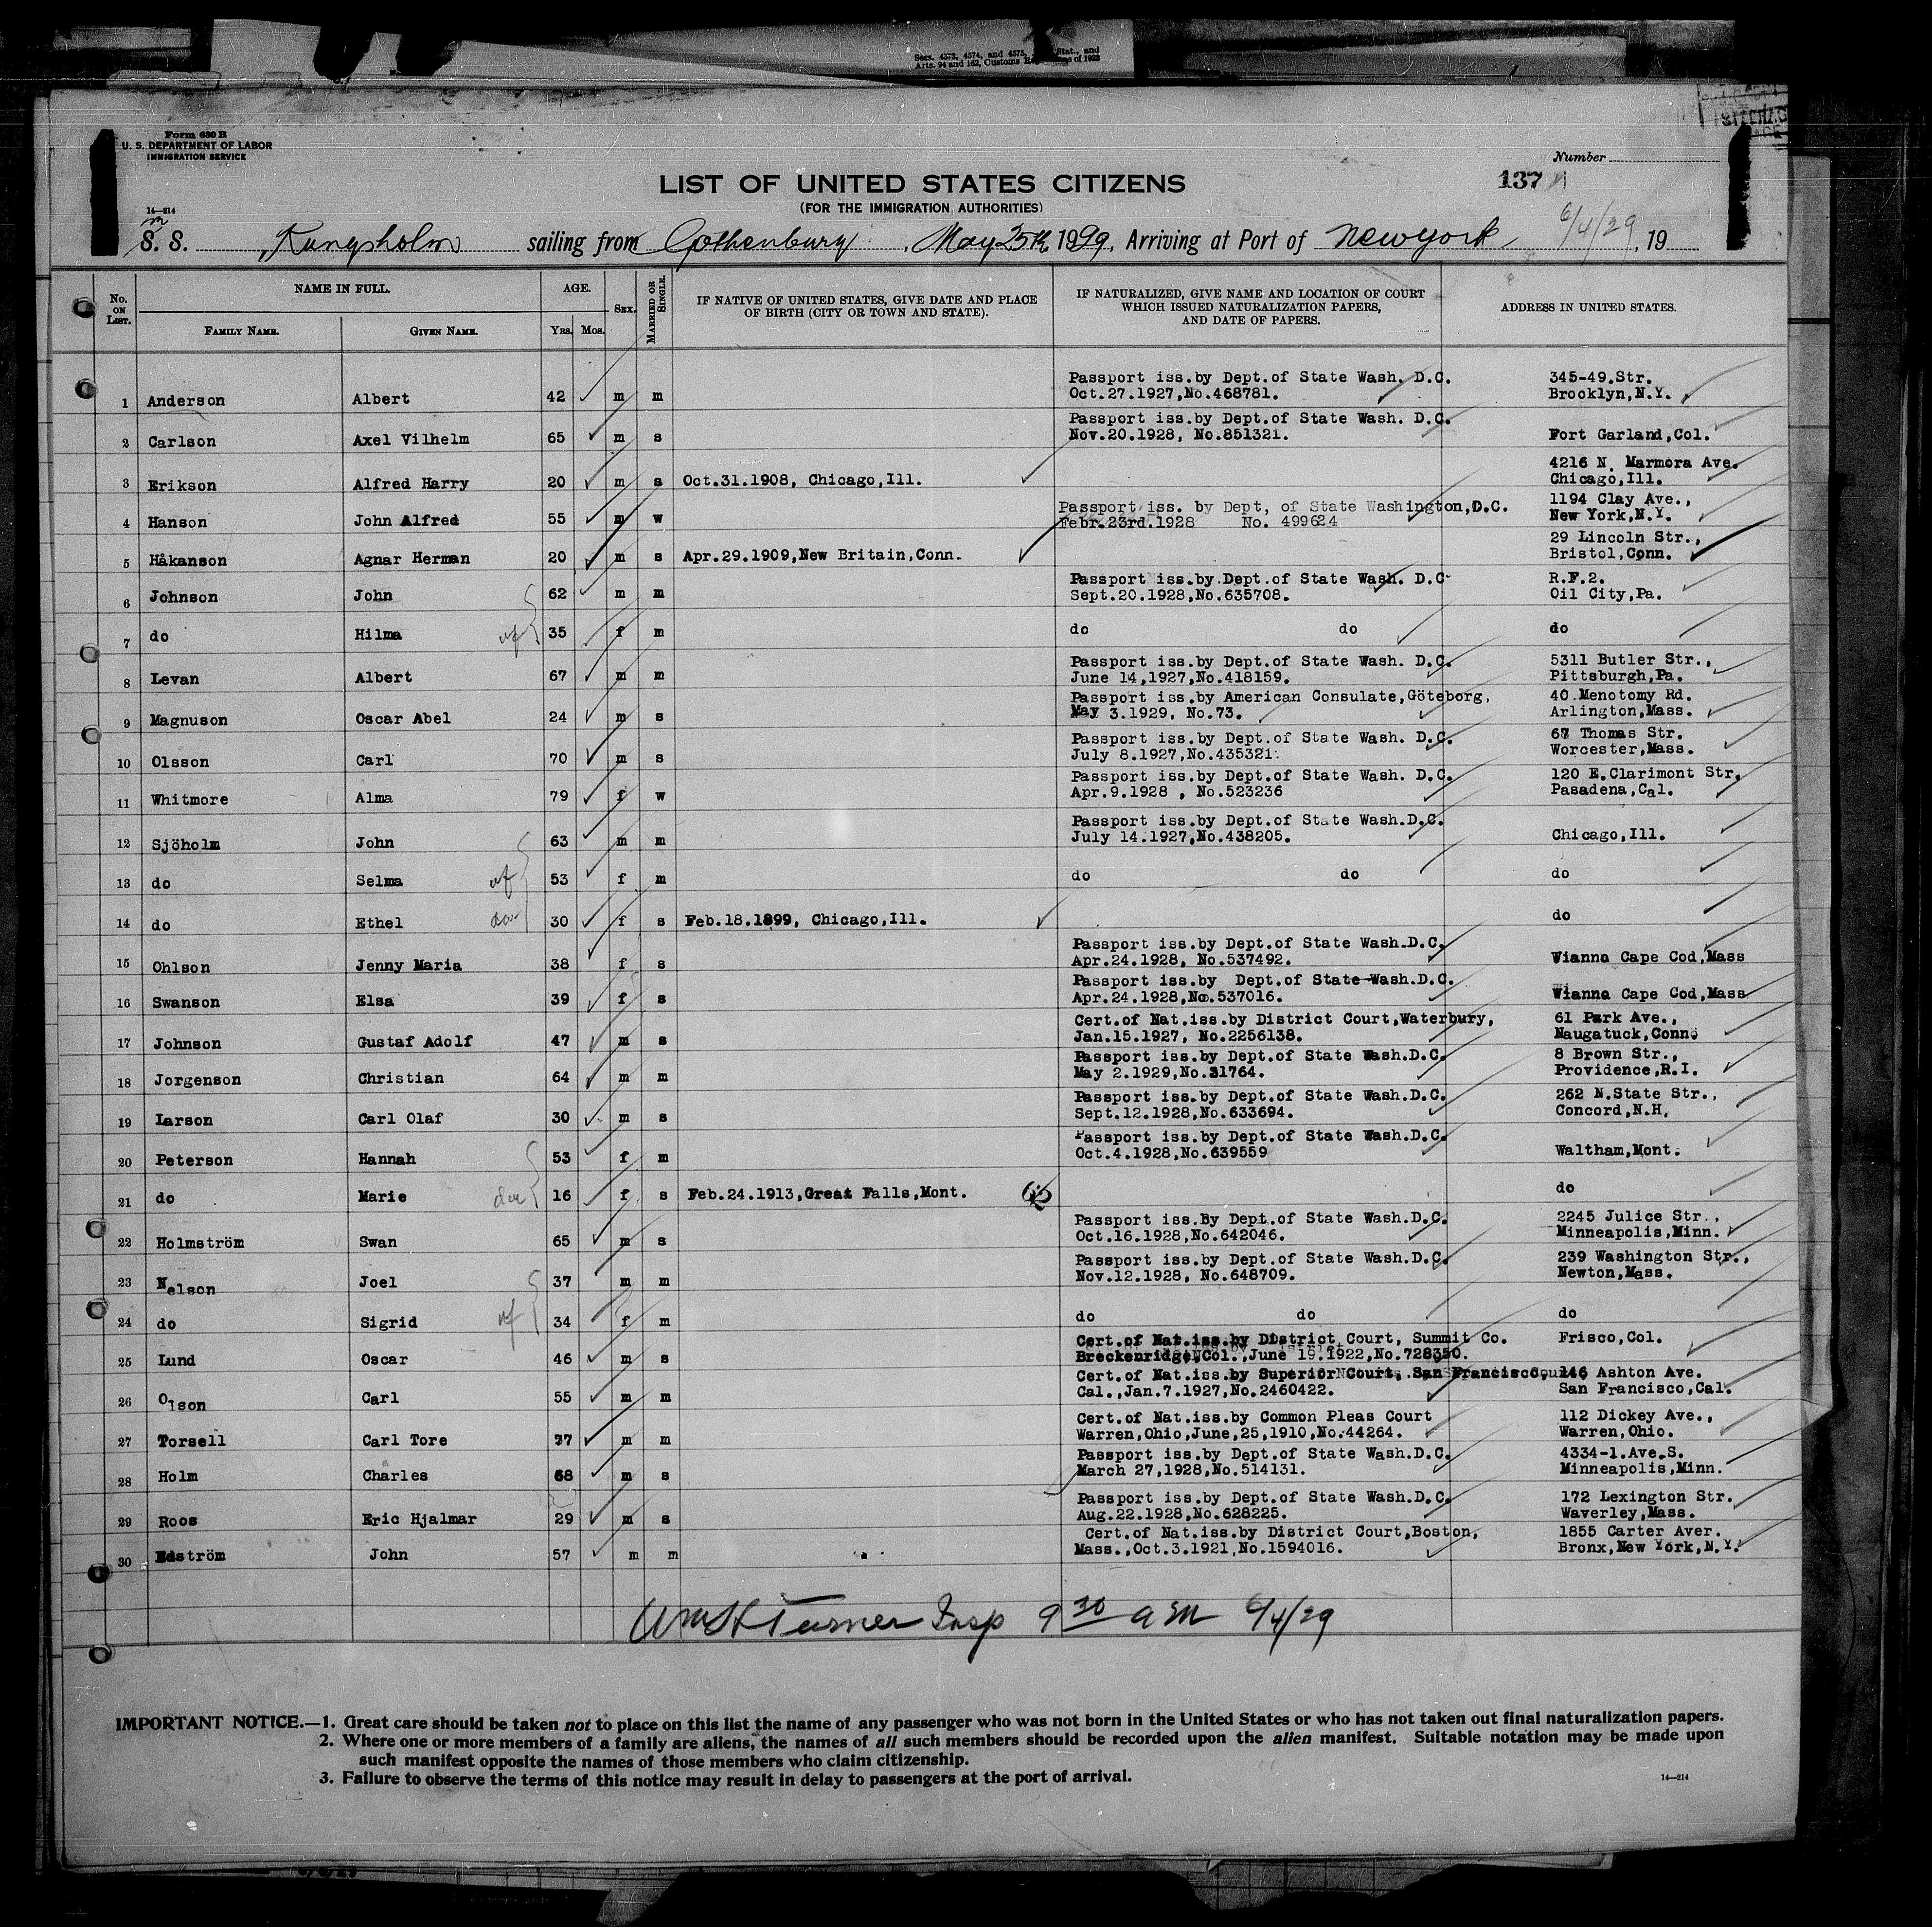 Secs. 4573, 4574, and 4575, Stat., and
Arts. 94 and 162, Customs of 1923
Form 630 B
U. S. DEPARTMENT OF LABOR
IMMIGRATION SERVICE
Number
LIST OF UNITED STATES CITIZENS
137
(FOR THE IMMIGRATION AUTHORITIES)
14—214
m
S. S. Kungsholm sailing from Gothenburg, May 25th 1929, Arriving at Port of New York, 6/4/29, 19
No. ON LIST. NAME IN FULL. AGE. SEX. MARRIED OR SINGLE. IF NATIVE OF UNITED STATES, GIVE DATE AND PLACE OF BIRTH (CITY OR TOWN AND STATE). IF NATURALIZED, GIVE NAME AND LOCATION OF COURT WHICH ISSUED NATURALIZATION PAPERS, AND DATE OF PAPERS. ADDRESS IN UNITED STATES.
FAMILY NAME. GIVEN NAME. YRS. MOS.
Passport iss.by Dept.of State Wash. D.C. 345-49.Str.
1 Anderson Albert 42 m m Oct.27.1927,No.468781. Brooklyn,N.Y.
Passport iss.by Dept.of State Wash. D.C.
2 Carlson Axel Vilhelm 65 m s Nov.20.1928, No.851321. Fort Garland,Col.
4216 N. Marmora Ave.
3 Erikson Alfred Harry 20 m s Oct.31.1908, Chicago,Ill. Chicago,Ill.
Passport iss. by Dept, of State Washington,D.C. 1194 Clay Ave.,
4 Hanson John Alfred 55 m w Febr.23rd.1928 No. 499624 New York,N.Y.
29 Lincoln Str.,
5 Håkanson Agnar Herman 20 m s Apr.29.1909,New Britain,Conn. Bristol,Conn.
Passport iss.by.Dept.of State Wash. D.C. R.F.2.
6 Johnson John 62 m m Sept.20.1928,No.635708. Oil City,Pa.
7 do Hilma wf 35 f m do do do
Passport iss.by Dept.of State Wash. D.C. 5311 Butler Str.,
8 Levan Albert 67 m m June 14,1927,No.418159. Pittsburgh,Pa.
Passport iss.by American Consulate,Göteborg, 40 Menotomy Rd.
9 Magnuson Oscar Abel 24 m s May 3.1929, No.73. Arlington,Mass.
Passport iss.by Dept.of State Wash. D.C. 67 Thomas Str.
10 Olsson Carl 70 m s July 8.1927,No.435321. Worcester,Mass.
Passport iss.by Dept.of State Wash. D.C. 120 E.Clarimont Str.
11 Whitmore Alma 79 f w Apr.9.1928 , No.523236 Pasadena,Cal.
Passport iss.by Dept.of State Wash.D.C.
12 Sjöholm John 63 m m July 14.1927,No.438205. Chicago,Ill.
13 do Selma wf 53 f m do do do
14 do Ethel da 30 f s Feb.18.1899, Chicago,Ill. do
Passport iss.by Dept.of State Wash.D.C.
15 Ohlson Jenny Maria 38 f s Apr.24.1928, No.537492. Vianno Cape Cod,Mass
Passport iss.by Dept.of State Wash.D.C.
16 Swanson Elsa 39 f s Apr.24.1928,No.537016. Wianno Cape Cod,Mass
Cert.of Nat.iss.by District Court,Waterbury, 61 Park Ave.,
17 Johnson Gustaf Adolf 47 m s Jan.15.1927, No.2256138. Naugatuck,Conn.
Passport iss.by Dept.of State Wash.D.C. 8 Brown Str.,
18 Jorgenson Christian 64 m m May 2.1929,No.31764. Providence,R.I.
Passport iss.by Dept.of State Wash.D.C. 262 N.State Str.,
19 Larson Carl Olaf 30 m s Sept.12.1928,No.633694. Concord,N.H.
Passport iss.by Dept.of State Wash.D.C.
20 Peterson Hannah 53 f m Oct.4.1928,No.639559 Waltham,Mont.
21 do Marie da 16 f s Feb.24.1913,Great Falls,Mont. do
Passport iss.By Dept.of State Wash.D.C. 2245 Julice Str.,
22 Holmström Swan 65 m s Oct.16.1928,No.642046. Minneapolis,Minn.
Passport iss.by Dept.of State Wash.D.C. 239 Washington Str.,
23 Nelson Joel 37 m m Nov.12.1928, No.648709. Newton,Mass.
24 do Sigrid wf 34 f m do do do
Cert.of Nat.iss.by District Court, Summit Co. Frisco,Col.
25 Lund Oscar 46 m s Breckenridge,Col.,June 19.1922,No.728350.
Cert.of Nat.iss.by Superior Court, San Francisco, 146 Ashton Ave.
26 Olson Carl 55 m m Cal.,Jan.7.1927,No.2460422. San Francisco,Cal.
Cert.of Nat.iss.by Common Pleas Court 112 Dickey Ave.,
27 Torsell Carl Tore 37 m m Warren,Ohio,June,25,1910,No.44264. Warren,Ohio.
Passport iss.by Dept.of State Wash.D.C. 4334-1.Ave.S.
28 Holm Charles 68 m s March 27,1928,No.514131. Minneapolis,Minn.
Passport iss.by Dept.of State Wash.D.C. 172 Lexington Str.
29 Roos Eric Hjalmar 29 m s Aug.22.1928,No.628225. Waverley,Mass.
Cert.of Nat.iss.by District Court,Boston, 1855 Carter Aver.
30 Edström John 57 m m Mass.,Oct.3.1921,No.1594016. Bronx,New York,N.Y.
Wm H Turner Insp 9 30 a m 6/4/29
IMPORTANT NOTICE.—1. Great care should be taken not to place on this list the name of any passenger who was not born in the United States or who has not taken out final naturalization papers.
2. Where one or more members of a family are aliens, the names of all such members should be recorded upon the alien manifest. Suitable notation may be made upon
such manifest opposite the names of those members who claim citizenship.
3. Failure to observe the terms of this notice may result in delay to passengers at the port of arrival.
14—214